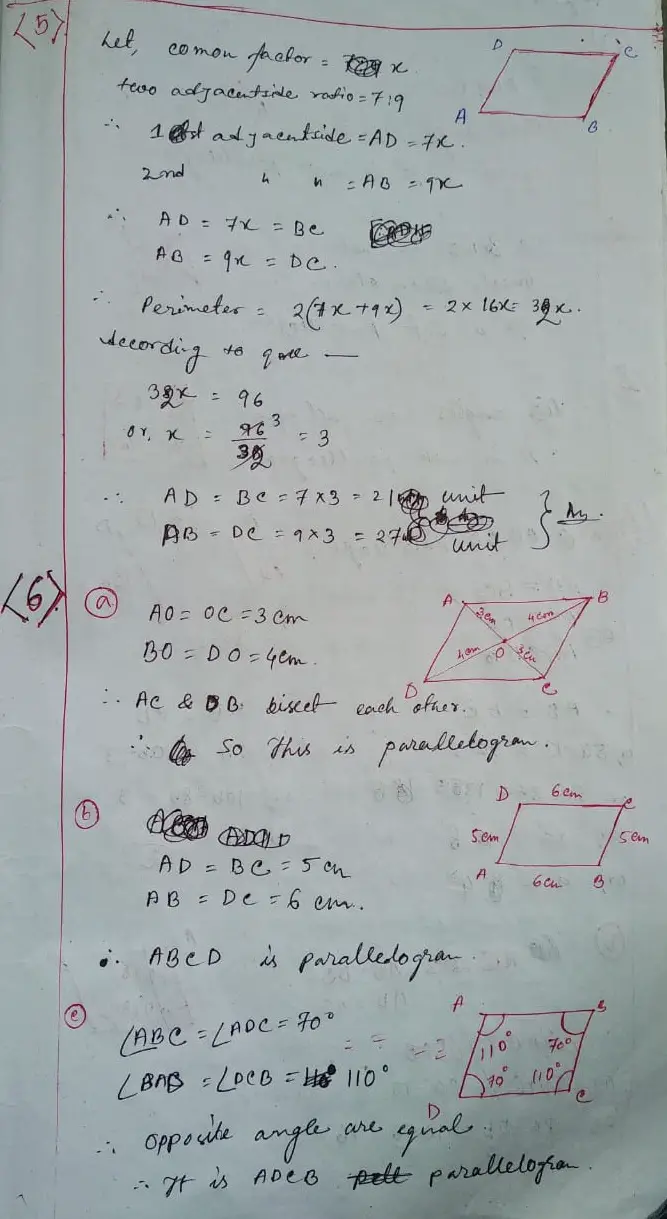 <5>
Let, comon factor = x
D C
A B
two adjacentside ratio = 7:9
∴ 1st adjacentside = AD = 7x.
2nd " " = AB = 9x
∴ AD = 7x = BC
AB = 9x = DC.
∴ Perimeter = 2(7x+9x) = 2 × 16x = 32x.
According to que —
32x = 96
or, x = 96/32 3 = 3
∴ AD = BC = 7×3 = 21 unit
AB = DC = 9×3 = 27 unit } Ans.
<6> (a)
AO = OC = 3 cm
BO = DO = 4cm.
A B
3cm 4cm
4cm O 3cm
D C
∴ AC & DB bisect each other.
∴ So This is parallelogram.
(b)
D 6cm C
5cm 5cm
A 6cm B
AD = BC = 5 cm
AB = DC = 6 cm.
∴ ABCD is paralledogram.
(c)
∠ABC = ∠ADC = 70°
∠BAB = ∠DCB = 110°
A B
110° 70°
70° 110°
D C
∴ opposite angle are equal.
∴ It is ADCB parallelogram.